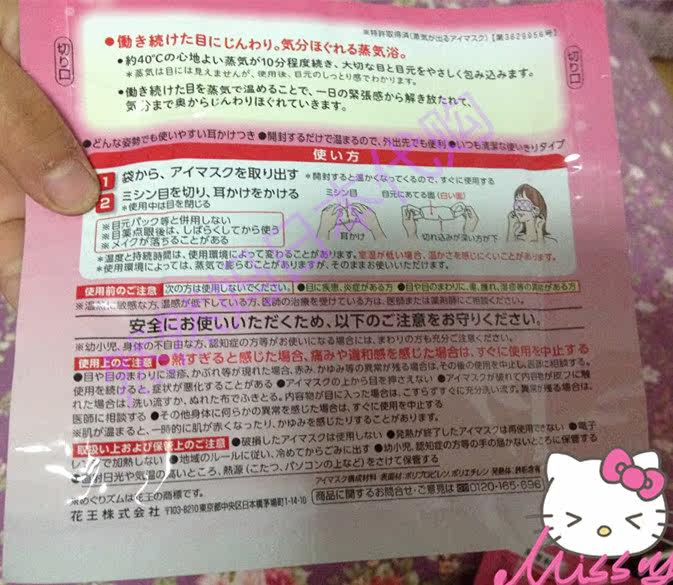 ※特許取得済(蒸気が出るアイマスク)【第3629956号】
切り口
切り口
●働き続けた目にじんわり。気分ほぐれる蒸気浴。
●約40℃の心地よい蒸気が10分程度続き、大切な目と目元をやさしく包み込みます。
*蒸気は目には見えませんが、使用後、目元のしっとり感でわかります。
●働き続けた目を蒸気で温めることで、一日の緊張感から解き放たれて、
気分まで奥からじんわりほぐれていきます。
●どんな姿勢でも使いやすい耳かけつき ●開封するだけで温まるので、外出先でも便利 ●いつも清潔な使いきりタイプ
使い方
1 袋から、アイマスクを取り出す *開封すると温かくなってくるので、すぐに使用する
2 ミシン目を切り、耳かけをかける
*使用中は目を閉じる
ミシン目
目元にあてる面(白い面)
耳かけ
切れ込みが深い方が下
※目元パック等と併用しない
※目薬点眼後は、しばらくしてから使う
※メイクが落ちることがある
*温度と持続時間は、使用環境によって変わることがあります。室温が低い場合、温かさを感じにくいことがあります。
*使用環境によっては、蒸気で膨らむことがありますが、そのままお使いいただけます。
使用前のご注意 次の方は使用しないでください。 ●目に疾患、炎症がある方 ●目や目のまわりに、傷、腫れ、湿疹等の異常がある方
※温熱に敏感な方、温感が低下している方、医師の治療を受けている方は、医師または薬剤師にご相談ください。
安全にお使いいただくため、以下のご注意をお守りください。
※幼小児、身体の不自由な方、認知症の方等がお使いになる場合には、まわりの方も充分ご注意ください。
使用上のご注意 ●熱すぎると感じた場合、痛みや違和感を感じた場合は、すぐに使用を中止する
●目や目のまわりに湿疹、かぶれ等が現れた場合、赤み、かゆみ等の異常が残る場合は、その後の使用を中止し、医師に相談する。
使用を続けると、症状が悪化することがある ●アイマスクの上から目を押さえない ●アイマスクが破れて内容物が皮フに触
れた場合は、洗い流すか、ぬれた布でふきとる。内容物が目に入った場合は、こすらずすぐに充分洗い流す。異常が残る場合は、
医師に相談する ●その他身体に何らかの異常を感じた場合は、すぐに使用を中止する
※肌が温まると、一時的に肌が赤くなったり、かゆみを感じたりすることがあります。
取扱い上および保管上のご注意 ●破損したアイマスクは使用しない ●発熱が終了したアイマスクは再使用できない ●電子
レンジで加熱しない ●地域のルールに従い、冷めてからごみに出す ●幼小児、認知症の方等の手の届かないところに保管する
日光や気温の高いところ、熱源(こたつ、パソコンの上など)をさけて保管する
アイマスク構成材料 表面材:ポリプロピレン、ポリエチレン 発熱体:鉄粉含有
めぐりズムは花王の商標です。
商品に関するお問合せ・ご意見は 0120-165-696
花王株式会社 〒103-8210東京都中央区日本橋茅場町1-14-10